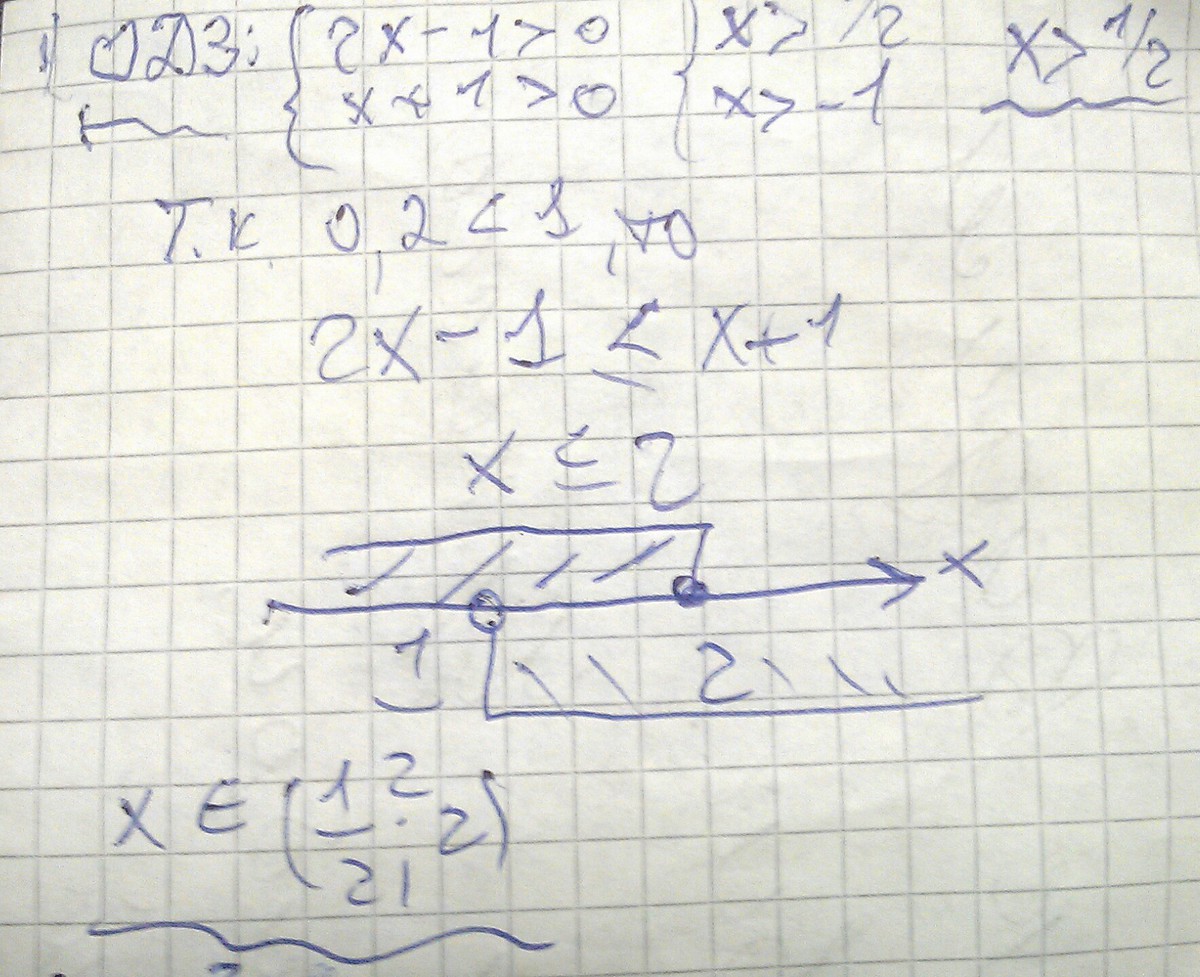 ОДЗ: { 2x - 1 > 0 { x > 1/2 x > 1/2
x + 1 > 0 x > -1
Т.к. 0,2 < 1, то
2x - 1 ≤ x + 1
x ≤ 2
x
1 2
2
x ∈ (1/2; 2)